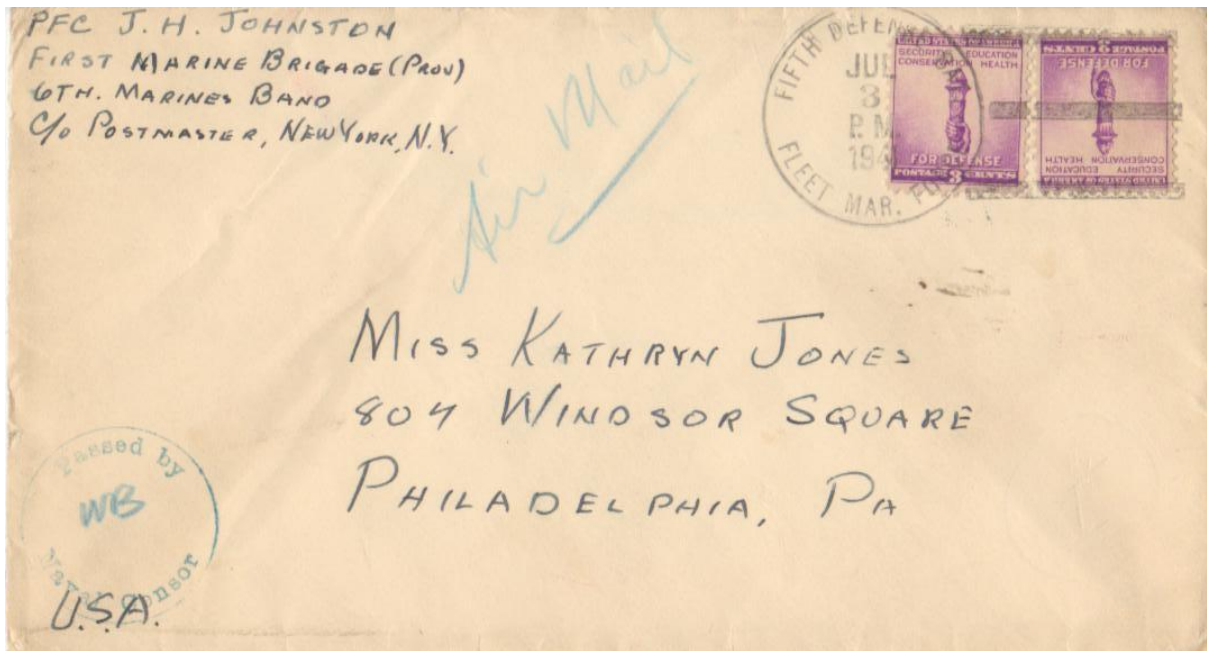 PFC J. H. JOHNSTON
FIRST MARINE BRIGADE (PROV)
6TH. MARINES BAND
C/O POSTMASTER, NEW YORK, N.Y.
Air Mail
FIFTH DEFENSE
JUL
3
P.M.
194
FLEET MAR.
UNITED STATES OF AMERICA
SECURITY EDUCATION
CONSERVATION HEALTH
FOR DEFENSE
POSTAGE 3 CENTS
UNITED STATES OF AMERICA
SECURITY EDUCATION
CONSERVATION HEALTH
FOR DEFENSE
POSTAGE 3 CENTS
MISS KATHRYN JONES
804 WINDSOR SQUARE
PHILADELPHIA, PA
Passed by
WB
Naval Censor
U.S.A.